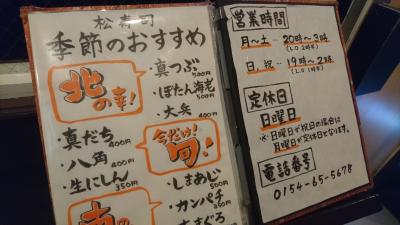 松寿司
季節のおすすめ
北の幸!
・真つぶ
500円
・ぼたん海老
500円
・大兵
400円
・真だち
400円
・八角
400円
・生にしん
350円
今だけ!
旬!
・しまあじ
500円
・カンパチ
350円
南の
営業時間
月〜土…20時〜3時
(L.O 2時半)
日,祝…19時〜2時
定休日
日曜日
※日曜日が祝日の場合は
月曜日が定休日となます。
電話番号
0154-65-5678